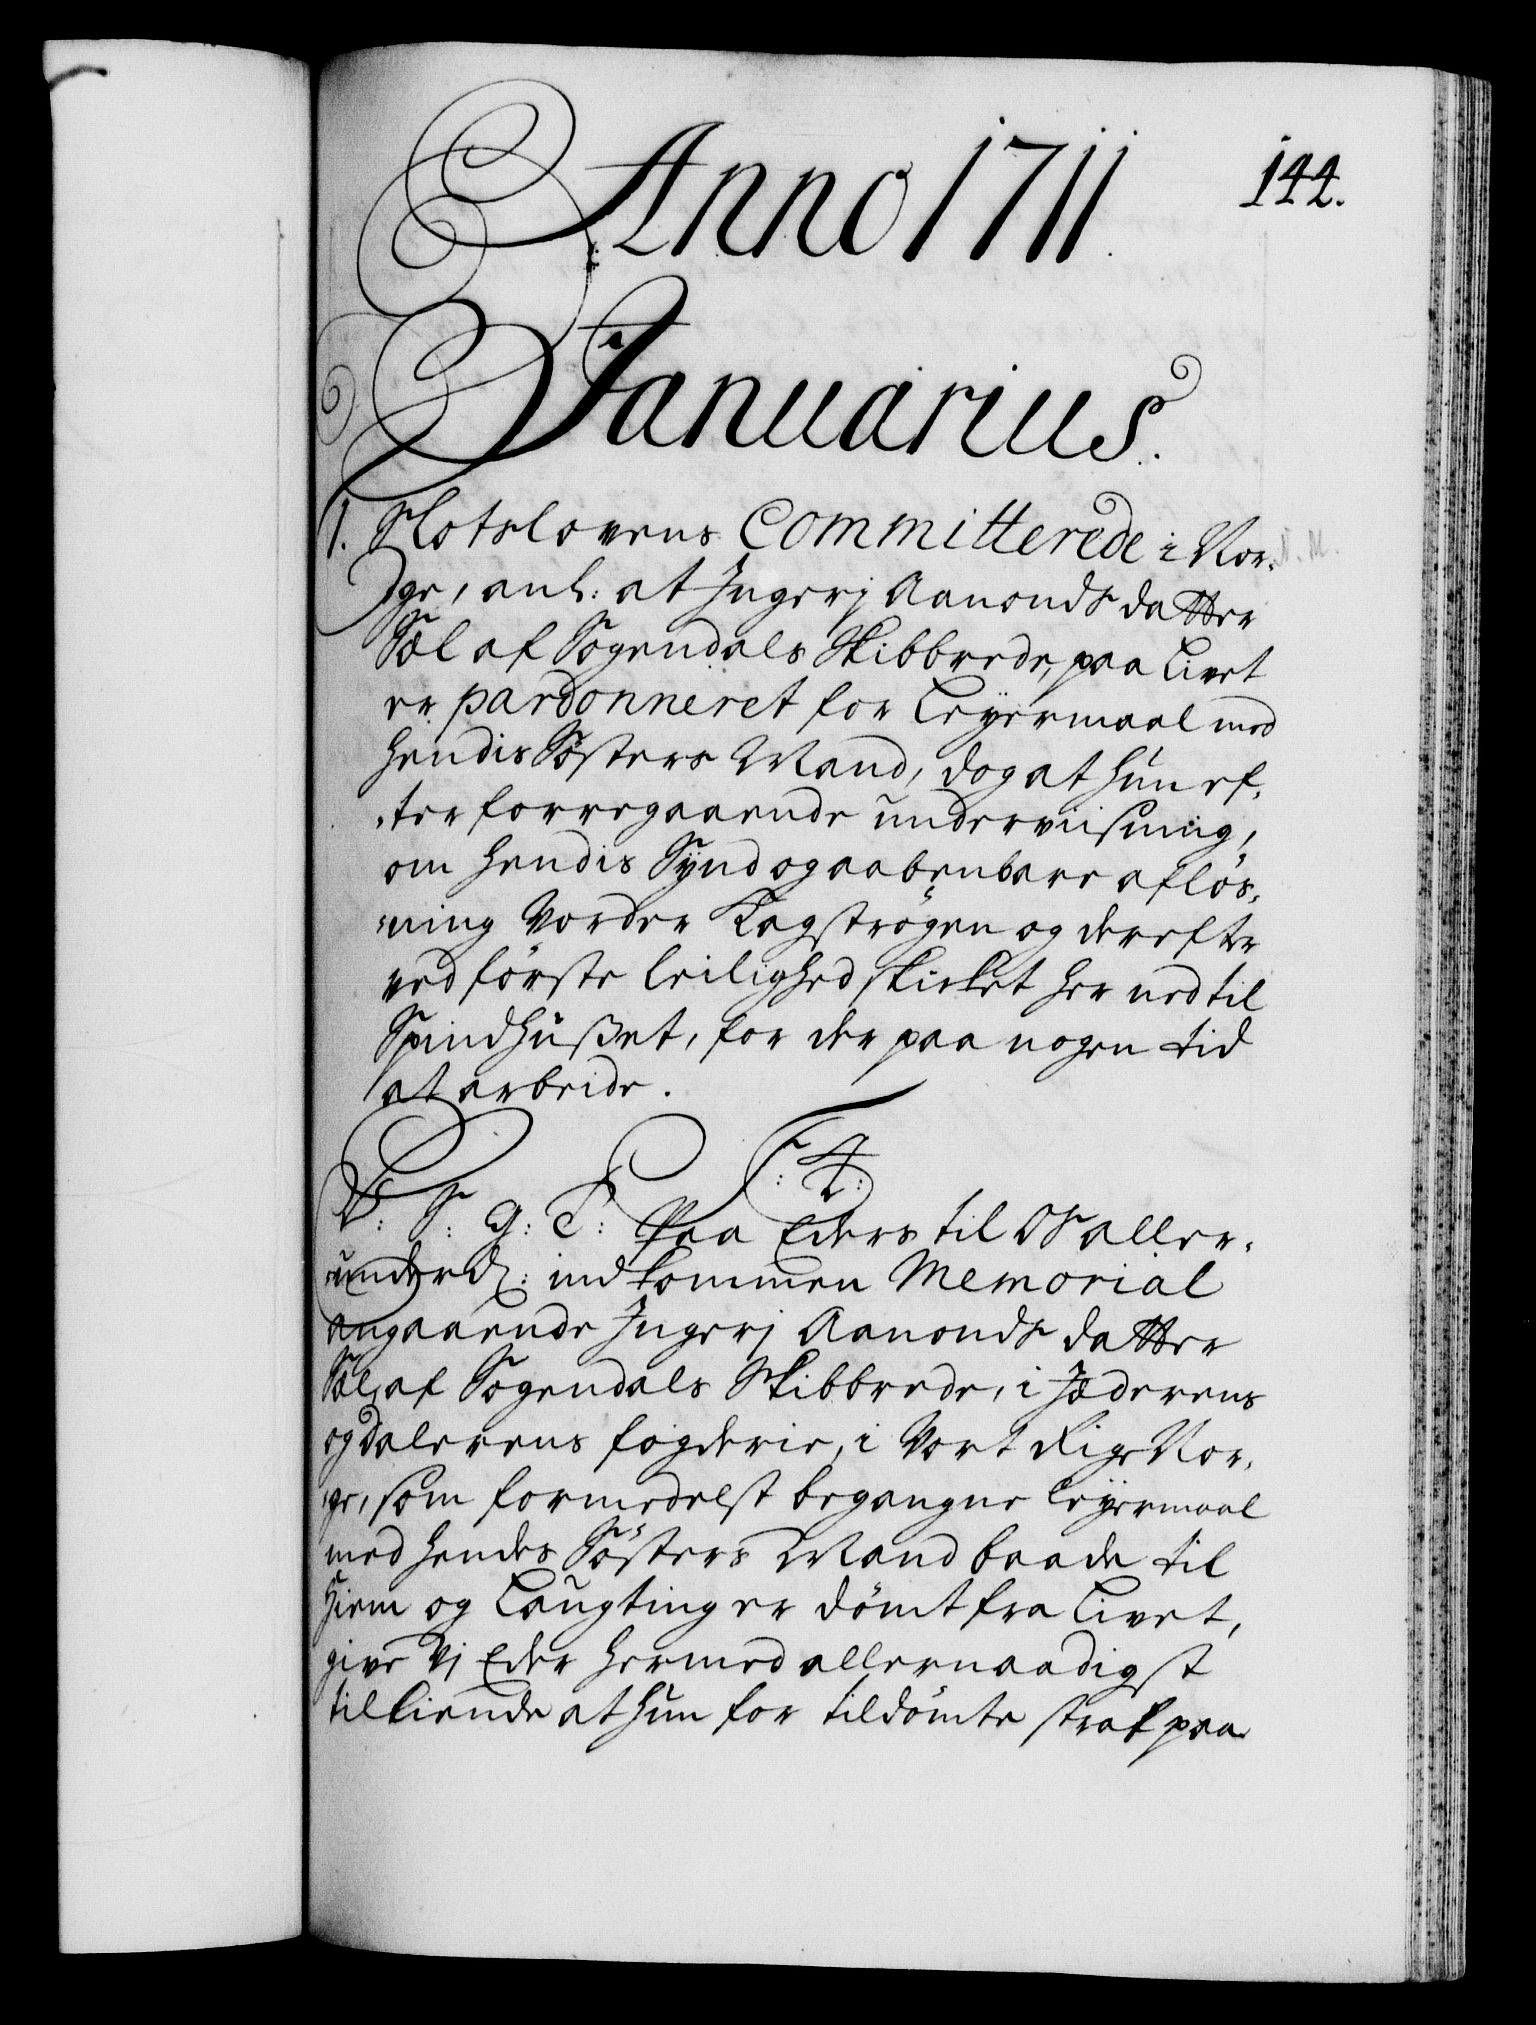 144.
Anno 1711.
Januarius.
1. Slotslovens Committerede i Nor-
ge, anl: at Ingerj Aanonds datter
Sæl af Sogendals Skibbrede, paa Livet
er pardonneret for Leyermaal med
hendis Søsters Mand, dog at hun ef-
ter forregaaende underviisning,
om hendis Synd og aabenbare afløs-
ning vorder Kagstrøgen og derefter
ved første leilighed skicket her ned til
Spindhußet, for der paa nogen tid
at arbeide.
F: 4:
V: S: G: T: Paa Eders til Os aller-
underd: indkommen Memorial
angaaende Ingerj Aanonds datter
Sæl, af Sogendals Skibbrede, i Jæderens
og Dalerens fogderie, i Vort Rige Nor-
ge, som formedelst begangne Leyermaal
med hendes Søsters Mand baade til
Hiem og Laugting er dömt fra Livet,
give Vj Eder hermed allernaadigst
tilkiende at hun for tildömte straf paa